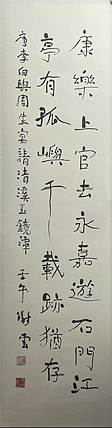 康樂上官去永嘉遊石門江
亭有孤嶼千載跡猶存
唐李白與周生宴請清溪玉鏡潭 壬午謝雲